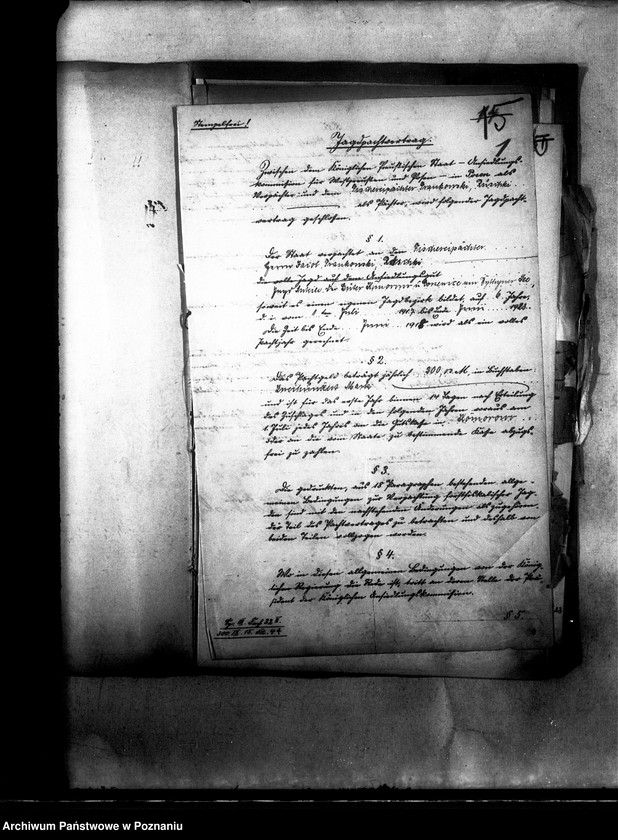 Stempelfrei!
15
1
Jagdpachtvertrag.
Zwischen dem Königlich Preußischen Staat - Ansiedlungs-
kommission für Westpreußen und Posen - in Posen als
Verpächter und dem Fischereipächter
als Pächter, wird folgender Jagdpacht-
vertrag geschlossen.
§ 1.
Der Staat verpachtet an den Fischereipächter
Herrn Jacob
die volle Jagd auf dem Ansiedlungsgut
soweit es einen eigenen Jagdbezirk bildet, auf 6 Jahre,
d. i. vom 1 ten Juli 1917 bis Ende Juni 1923.
Die Zeit bis Ende Juni 1918 wird als ein volles
Pachtjahr gerechnet.
§ 2.
Das Pachtgeld beträgt jährlich 200, M, in Buchstaben:
Zweihundert Mark
und ist für das erste Jahr binnen 14 Tagen nach Erteilung
des Zuschlages und in den folgenden Jahren voraus am
1. Juli jedes Jahres an die Gutskasse in Komorowo
oder an die vom Staate zu bestimmende Kasse abzugs-
frei zu zahlen.
§ 3.
Die gedruckten, aus 18 Paragraphen bestehenden allge-
meinen Bedingungen zur Verpachtung fiskalischer Jag-
den sind mit den nachstehenden Änderungen als zugehören-
der Teil des Pachtvertrages zu betrachten und deshalb von
beiden Teilen vollzogen worden.
§ 4.
Wo in diesen allgemeinen Bedingungen von der König-
lichen Regierung die Rede ist, tritt an deren Stelle der Prä-
sident der Königlichen Ansiedlungskommission.
§ 5
Archiwum Państwowe w Poznaniu